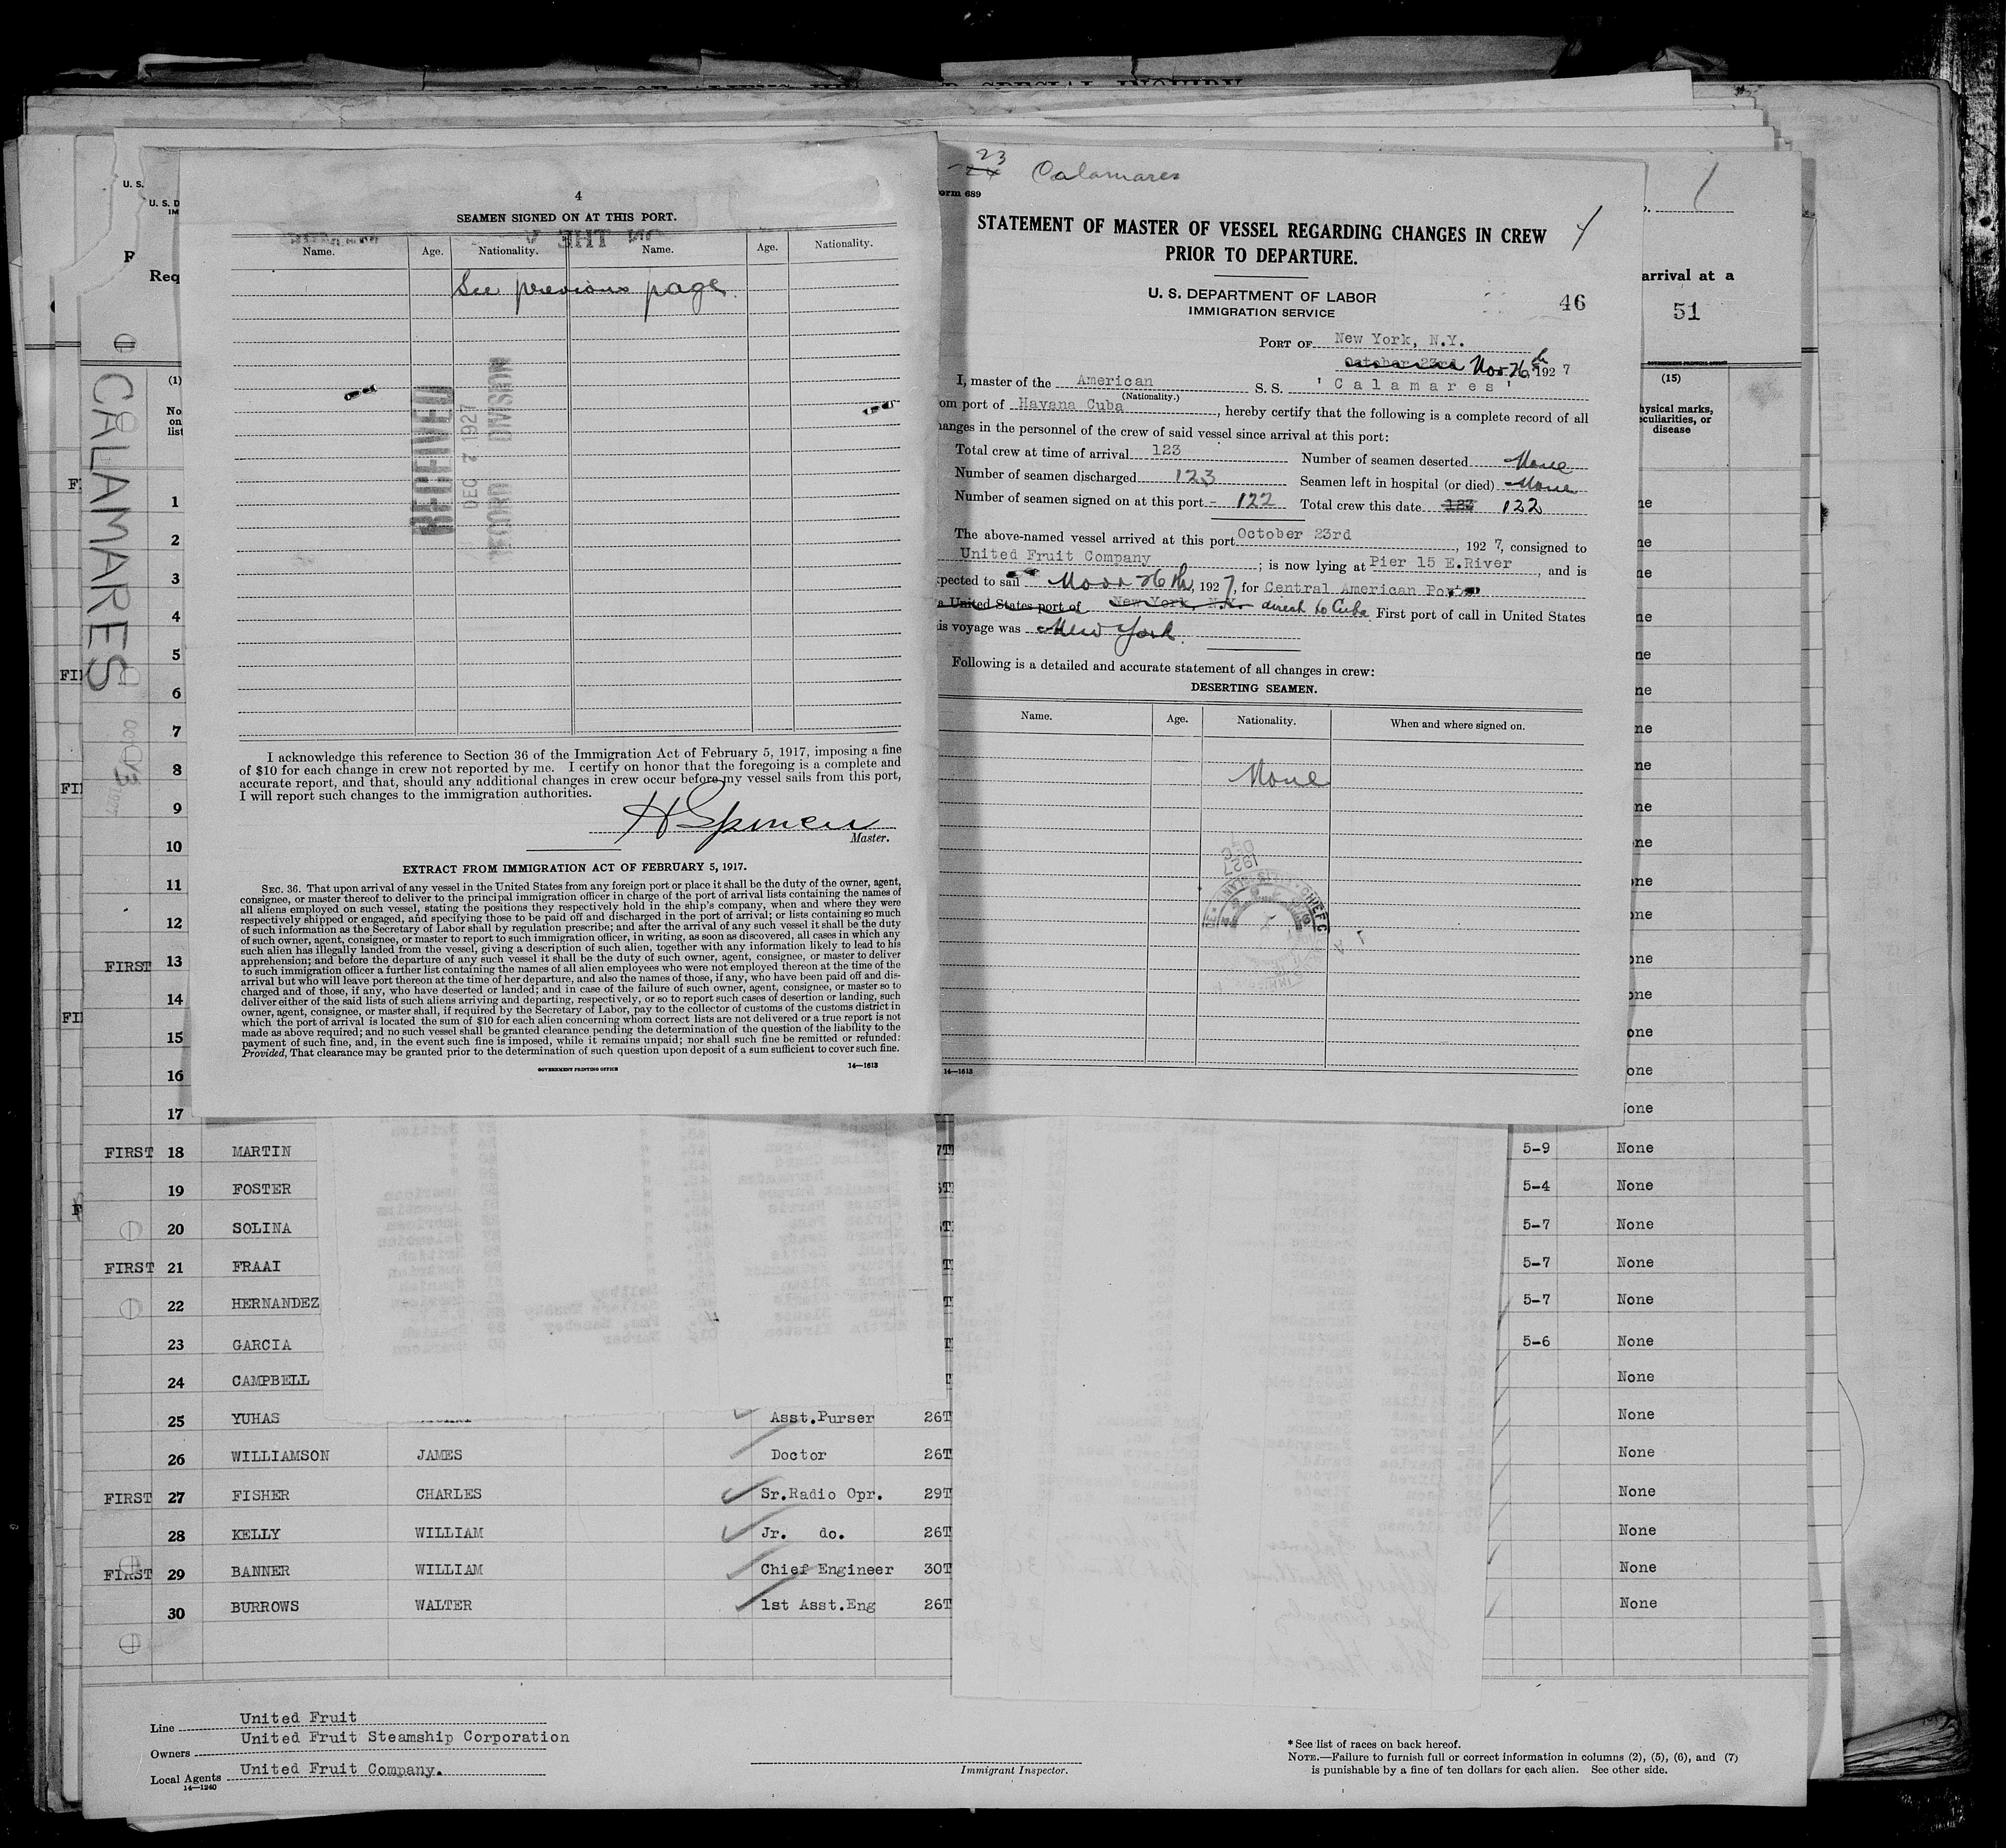 4
SEAMEN SIGNED ON AT THIS PORT.
Name. Age. Nationality. Name. Age. Nationality.
See previous page.
RECEIVED
DEC 2 1927
RECORD DIVISION
I acknowledge this reference to Section 36 of the Immigration Act of February 5, 1917, imposing a fine
of $10 for each change in crew not reported by me. I certify on honor that the foregoing is a complete and
accurate report, and that, should any additional changes in crew occur before my vessel sails from this port,
I will report such changes to the immigration authorities.
Master.
EXTRACT FROM IMMIGRATION ACT OF FEBRUARY 5, 1917.
SEC. 36. That upon arrival of any vessel in the United States from any foreign port or place it shall be the duty of the owner, agent,
consignee, or master thereof to deliver to the principal immigration officer in charge of the port of arrival lists containing the names of
all aliens employed on such vessel, stating the positions they respectively hold in the ship's company, when and where they were
respectively shipped or engaged, and specifying those to be paid off and discharged in the port of arrival; or lists containing so much
of such information as the Secretary of Labor shall by regulation prescribe; and after the arrival of any such vessel it shall be the duty
of such owner, agent, consignee, or master to report to such immigration officer, in writing, as soon as discovered, all cases in which any
such alien has illegally landed from the vessel, giving a description of such alien, together with any information likely to lead to his
apprehension; and before the departure of any such vessel it shall be the duty of such owner, agent, consignee, or master to deliver
to such immigration officer a further list containing the names of all alien employees who were not employed thereon at the time of the
arrival but who will leave port thereon at the time of her departure, and also the names of those, if any, who have been paid off and dis-
charged and of those, if any, who have deserted or landed; and in case of the failure of such owner, agent, consignee, or master so to
deliver either of the said lists of such aliens arriving and departing, respectively, or so to report such cases of desertion or landing, such
owner, agent, consignee, or master shall, if required by the Secretary of Labor, pay to the collector of customs of the customs district in
which the port of arrival is located the sum of $10 for each alien concerning whom correct lists are not delivered or a true report is not
made as above required; and no such vessel shall be granted clearance pending the determination of the question of the liability to the
payment of such fine, and, in the event such fine is imposed, while it remains unpaid; nor shall such fine be remitted or refunded:
Provided, That clearance may be granted prior to the determination of such question upon deposit of a sum sufficient to cover such fine.
GOVERNMENT PRINTING OFFICE 14—1613
23
Calamares
orm 689
STATEMENT OF MASTER OF VESSEL REGARDING CHANGES IN CREW
PRIOR TO DEPARTURE.
U. S. DEPARTMENT OF LABOR
IMMIGRATION SERVICE
46
PORT OF New York, N.Y.
October 23rd Nov 26th, 1927
I, master of the American S. S. ' C a l a m a r e s '
(Nationality.)
om port of Havana Cuba, hereby certify that the following is a complete record of all
anges in the personnel of the crew of said vessel since arrival at this port:
Total crew at time of arrival 123 Number of seamen deserted None
Number of seamen discharged 123 Seamen left in hospital (or died) None
Number of seamen signed on at this port - 122 Total crew this date 123 122
The above-named vessel arrived at this port October 23rd, 1927, consigned to
United Fruit Company; is now lying at Pier 15 E.River, and is
pected to sail Nov. 26th, 1927, for Central American Ports
a United States port of New York, N.Y. direct to Cuba First port of call in United States
is voyage was New York.
Following is a detailed and accurate statement of all changes in crew:
DESERTING SEAMEN.
Name. Age. Nationality. When and where signed on.
None
DEC
1927
14—1613
CALAMARES
U. S.
U. S. D
IM
Req
(1)
No
on
list
arrival at a
51
(15)
hysical marks,
eculiarities, or
disease
1
2
3
4
5
6
7
8
9
10
11
12
FIRST 13
14
15
16
17
FIRST 18 MARTIN 5-9 None
19 FOSTER 5-4 None
20 SOLINA 5-7 None
FIRST 21 FRAAI 5-7 None
22 HERNANDEZ 5-7 None
23 GARCIA 5-6 None
24 CAMPBELL None
25 YUHAS Asst.Purser 26T None
26 WILLIAMSON JAMES Doctor 26T None
FIRST 27 FISHER CHARLES Sr.Radio Opr. 29T None
28 KELLY WILLIAM Jr. do. 26T None
FIRST 29 BANNER WILLIAM Chief Engineer 30T None
30 BURROWS WALTER 1st Asst.Eng 26T None
Line United Fruit
Owners United Fruit Steamship Corporation
Local Agents United Fruit Company.
14—1240
Immigrant Inspector.
* See list of races on back hereof.
NOTE.—Failure to furnish full or correct information in columns (2), (5), (6), and (7)
is punishable by a fine of ten dollars for each alien. See other side.